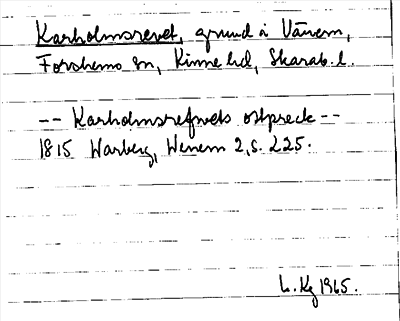 Karholmsrevet, grund i Vänern,
Forshems sn, Kinne hd, Skarab. l.
-- Karholmsrefvets ostpreck --
1815 Warberg, Wenern 2, s. 225.
L. Kg 1965.